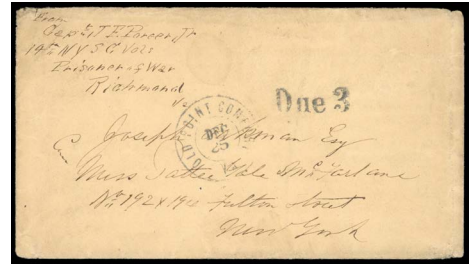 From
Capt J E Parcer Jr
14th N Y S C Vols
Prisoner of War
Richmond
Va
Due 3
OLD POINT COMFORT
DEC
25
Joseph man Esq
Miss Hattie Hale McFarlane
No 192 & 194 Fulton Street
New York